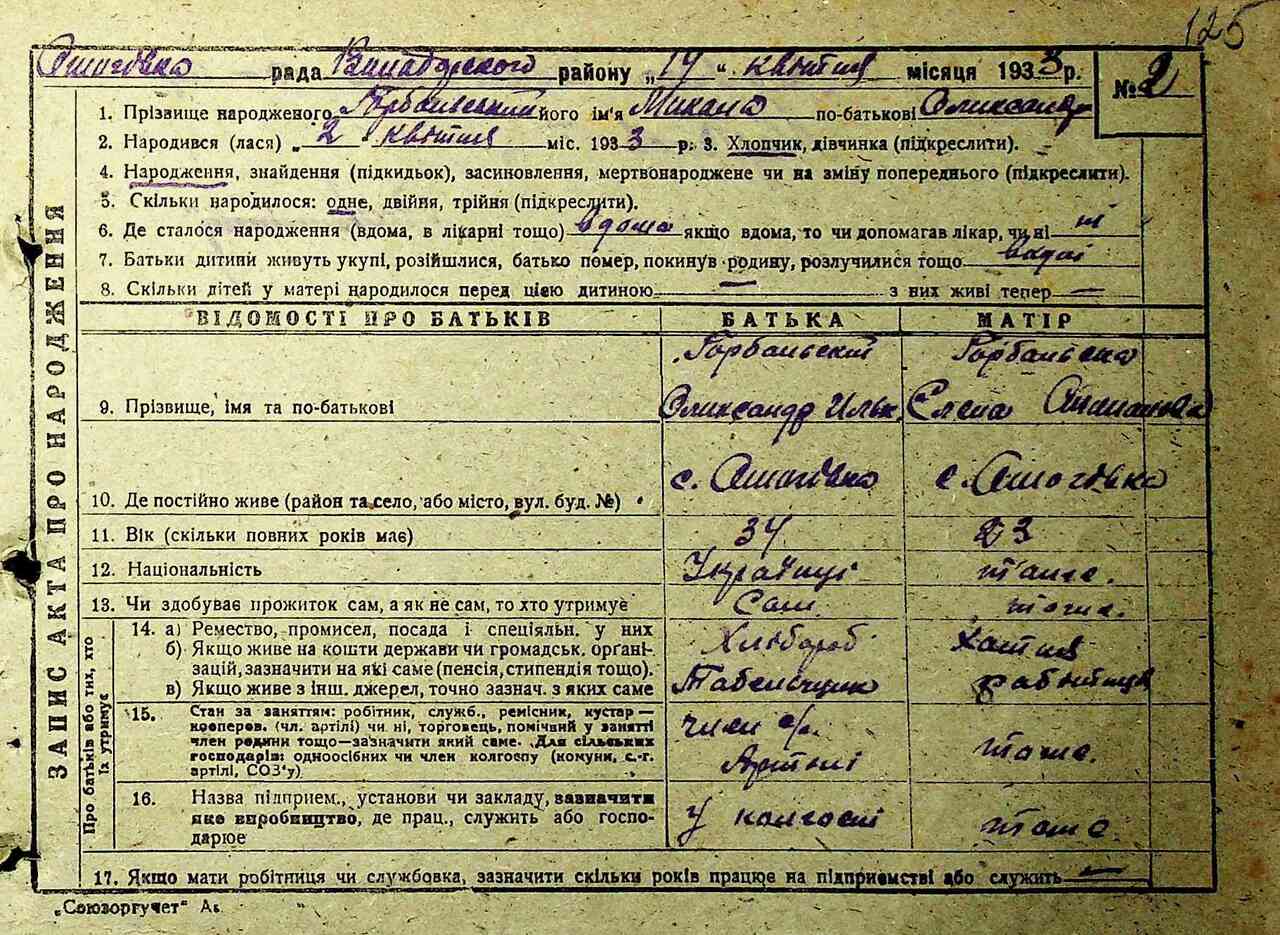 125
рада району „14“ квітня місяця 1933 р.
№ 2
1. Прізвище народженого його ім'я Микола по-батькові Олександр
2. Народився (лася) „ 2 “ квітня міс. 1933 р. 3. Хлопчик, дівчинка (підкреслити).
4. Народження, знайдення (підкидьок), засиновлення, мертвонароджене чи на зміну попереднього (підкреслити).
5. Скільки народилося: одне, двійня, трійня (підкреслити).
6. Де сталося народження (вдома, в лікарні тощо) вдома якщо вдома, то чи допомагав лікар, чи ні ні
7. Батьки дитини живуть укупі, розійшлися, батько помер, покинув родину, розлучилися тощо
8. Скільки дітей у матері народилося перед цією дитиною — з них живі тепер —
ЗАПИС АКТА ПРО НАРОДЖЕННЯ
ВІДОМОСТІ ПРО БАТЬКІВ БАТЬКА МАТІР
9. Прізвище, імя та по-батькові
Олександр Ильк Єлена
10. Де постійно живе (район та село, або місто, вул. буд. №) с. с.
11. Вік (скільки повних років має) 34 23
12. Національність Українці тоже.
13. Чи здобуває прожиток сам, а як не сам, то хто утримує Сам тоже.
Про батьків або тих, хто їх утримує
14. а) Ремество, промисел, посада і спеціяльн. у них Хлібороб Хатня
б) Якщо живе на кошти держави чи громадськ. органі-
зацій, зазначити на які саме (пенсія, стипендія тощо).
в) Якщо живе з інш. джерел, точно зазнач. з яких саме Табельщик робітниця
15. Стан за заняттям: робітник, служб., ремісник, кустар—
кооперов. (чл. артілі) чи ні, торговець, помічний у занятті
член родини тощо—зазначити який саме. Для сільських
господарів: одноосібних чи член колгоспу (комуни, с.-г.
артілі, СОЗ'у)
член с/г. Артілі тоже.
16. Назва підприєм., установи чи закладу, зазначити
яке виробництво, де прац., служить або госпо-
дарює
у колгоспі тоже.
17. Якщо мати робітниця чи службовка, зазначити скільки років працює на підприємстві або служить —
„Союзоргучет“